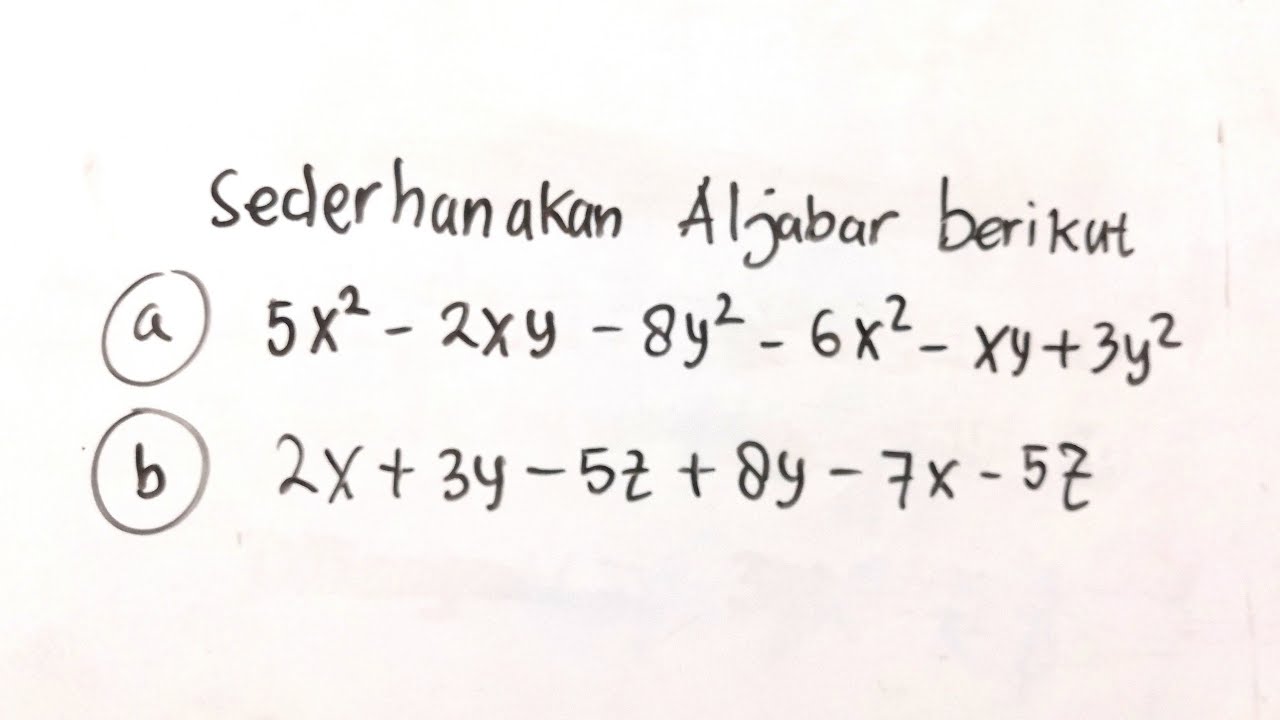 Sederhanakan Aljabar berikut
a 5x² - 2xy - 8y² - 6x² - xy + 3y²
b 2x + 3y - 5z + 8y - 7x - 5z